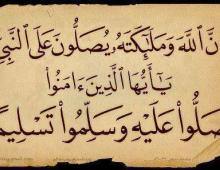 نَّ ٱللَّهَ وَمَلَٰٓئِكَتَهُۥ يُصَلُّونَ عَلَى ٱلنَّبِيِّ
يَٰٓأَيُّهَا ٱلَّذِينَ ءَامَنُوا۟
صَلُّوا۟ عَلَيْهِ وَسَلِّمُوا۟ تَسْلِيمً